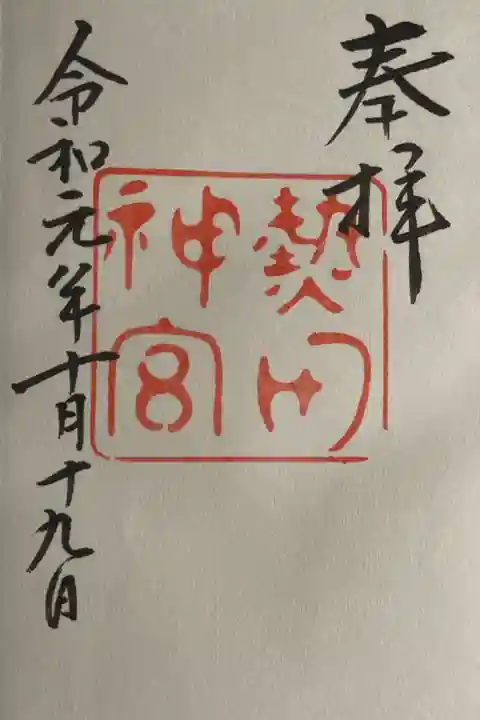 奉拝
熱田
神宮
令和元年十月十九日